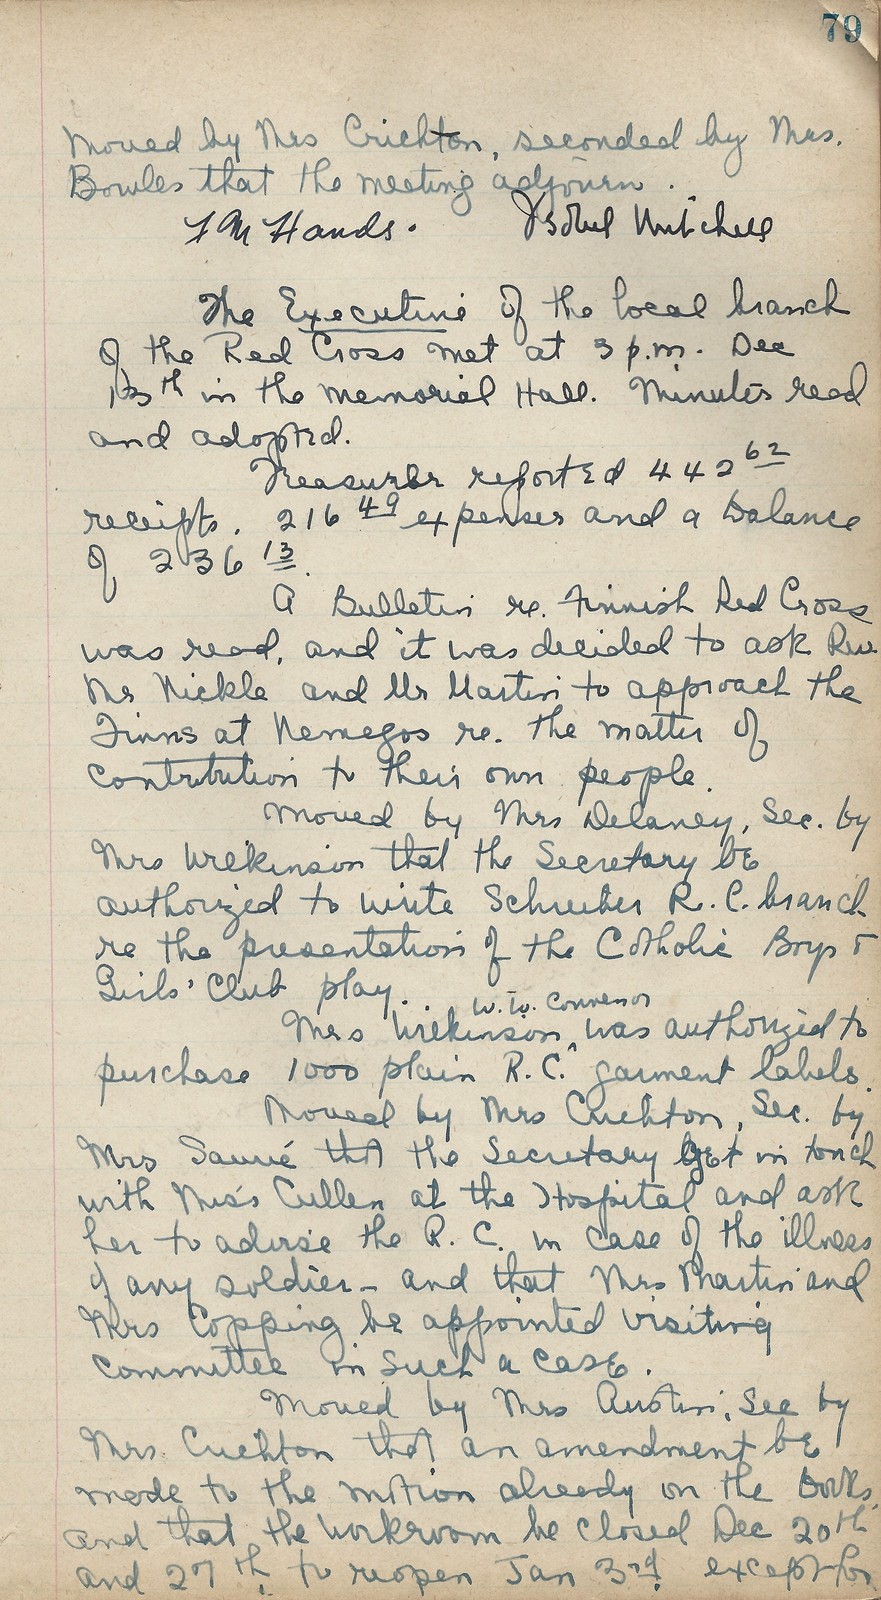 79
Moved by Mrs Crichton, seconded by Mrs.
Bowles that the meeting adjourn.
F M Hands. Isobel Mitchell
The Executive of the local branch
of the Red Cross met at 3 p.m. Dec
13th in the Memorial Hall. Minutes read
and adopted.
Treasurer reported 442 62
receipts, 216 49 expenses and a balance
of 236 13.
A Bulletin re. Finnish Red Cross
was read, and it was decided to ask Rev
Mr Nickle and Mr Martin to approach the
Finns at Nemegos re. the matter of
contribution to their own people.
Moved by Mrs Delaney, Sec. by
Mrs Wilkinson that the Secretary be
authorized to write Schreiber R. C. branch
re the presentation of the Catholic Boys &
Girls' Club play.
W.W. Convenor
Mrs Wilkinson ^ was authorized to
purchase 1000 plain R.C. garment labels.
Moved by Mrs Crichton, Sec. by
Mrs Sauvé that the Secretary get in touch
with Miss Cullen at the Hospital and ask
her to advise the R. C. in case of the illness
of any soldier - and that Mrs Martin and
Mrs Copping be appointed visiting
committee in such a case.
Moved by Mrs Austin, Sec by
Mrs. Crichton that an amendment be
made to the motion already on the books,
and that the workroom be closed Dec 20th
and 27th, to reopen Jan 3rd except for